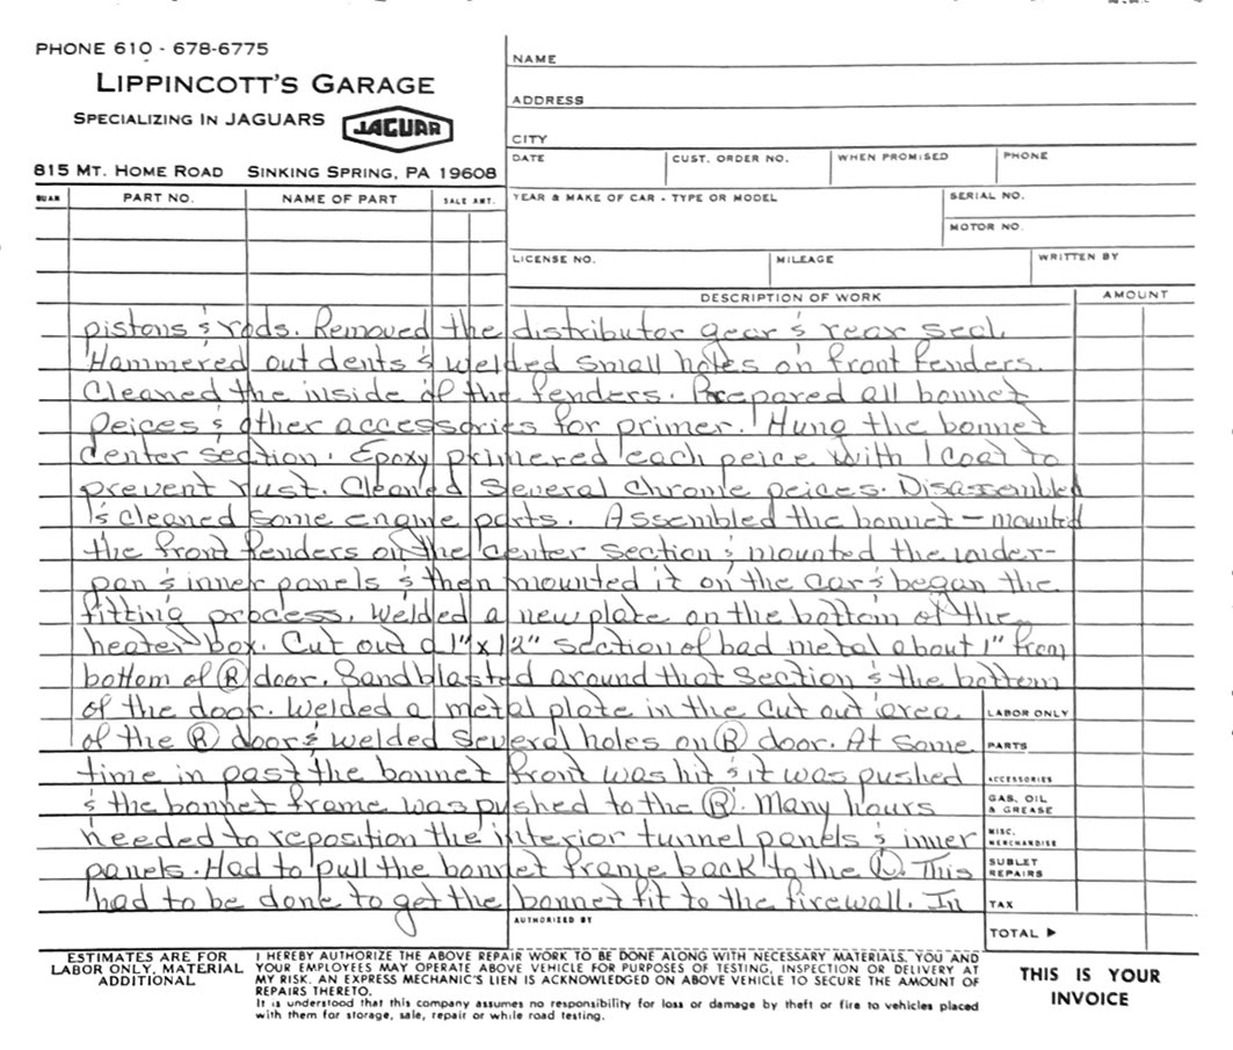 PHONE 610 - 678-6775
LIPPINCOTT'S GARAGE
SPECIALIZING IN JAGUARS JAGUAR
815 MT. HOME ROAD SINKING SPRING, PA 19608
NAME
ADDRESS
CITY
DATE CUST. ORDER NO. WHEN PROMISED PHONE
QUAN PART NO. NAME OF PART SALE AMT.
YEAR & MAKE OF CAR - TYPE OR MODEL SERIAL NO.
MOTOR NO.
LICENSE NO. MILEAGE WRITTEN BY
DESCRIPTION OF WORK AMOUNT
pistons & rods. Removed the distributor gear & rear seal.
Hammered out dents & welded small holes on front fenders.
Cleaned the inside of the fenders. Prepared all bonnet
peices & other accessories for primer. Hung the bonnet
center section. Epoxy primered each peice with 1 coat to
prevent rust. Cleaned several chrome peices. Disassembled
& cleaned some engine parts. Assembled the bonnet - mounted
the front fenders on the center section & mounted the under-
pan & inner panels & then mounted it on the car & began the
fitting process. Welded a new plate on the bottom of the
heater box. Cut out a 1" x 12" section of bad metal about 1" from
bottom of R door. Sandblasted around that section & the bottom
of the door. Welded a metal plate in the cut out area
of the R door & welded several holes on R door. At some
time in past the bonnet front was hit & it was pushed
& the bonnet frame was pushed to the R. Many hours
needed to reposition the interior tunnel panels & inner
panels. Had to pull the bonnet frame back to the L. This
had to be done to get the bonnet fit to the firewall. In
LABOR ONLY
PARTS
ACCESSORIES
GAS, OIL
& GREASE
MISC.
MERCHANDISE
SUBLET
REPAIRS
TAX
AUTHORIZED BY
TOTAL ▶
ESTIMATES ARE FOR
LABOR ONLY, MATERIAL
ADDITIONAL
I HEREBY AUTHORIZE THE ABOVE REPAIR WORK TO BE DONE ALONG WITH NECESSARY MATERIALS. YOU AND
YOUR EMPLOYEES MAY OPERATE ABOVE VEHICLE FOR PURPOSES OF TESTING, INSPECTION OR DELIVERY AT
MY RISK. AN EXPRESS MECHANIC'S LIEN IS ACKNOWLEDGED ON ABOVE VEHICLE TO SECURE THE AMOUNT OF
REPAIRS THERETO.
It is understood that this company assumes no responsibility for loss or damage by theft or fire to vehicles placed
with them for storage, sale, repair or while road testing.
THIS IS YOUR
INVOICE